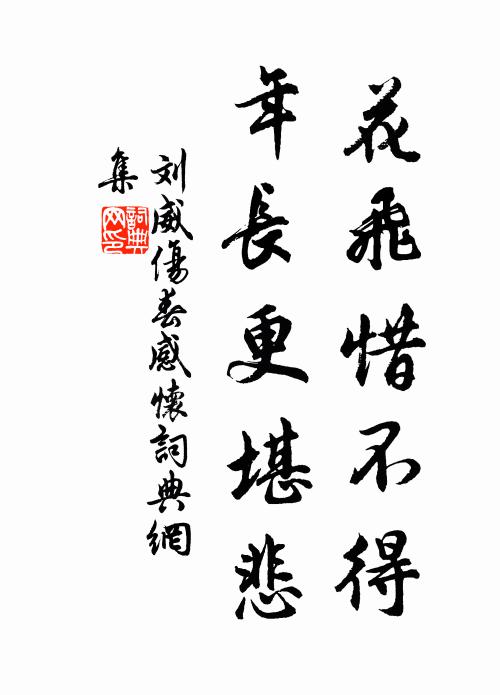 花飛惜不得
年長更堪悲
刘威傷春感懷詞典網
集
詞典
网印